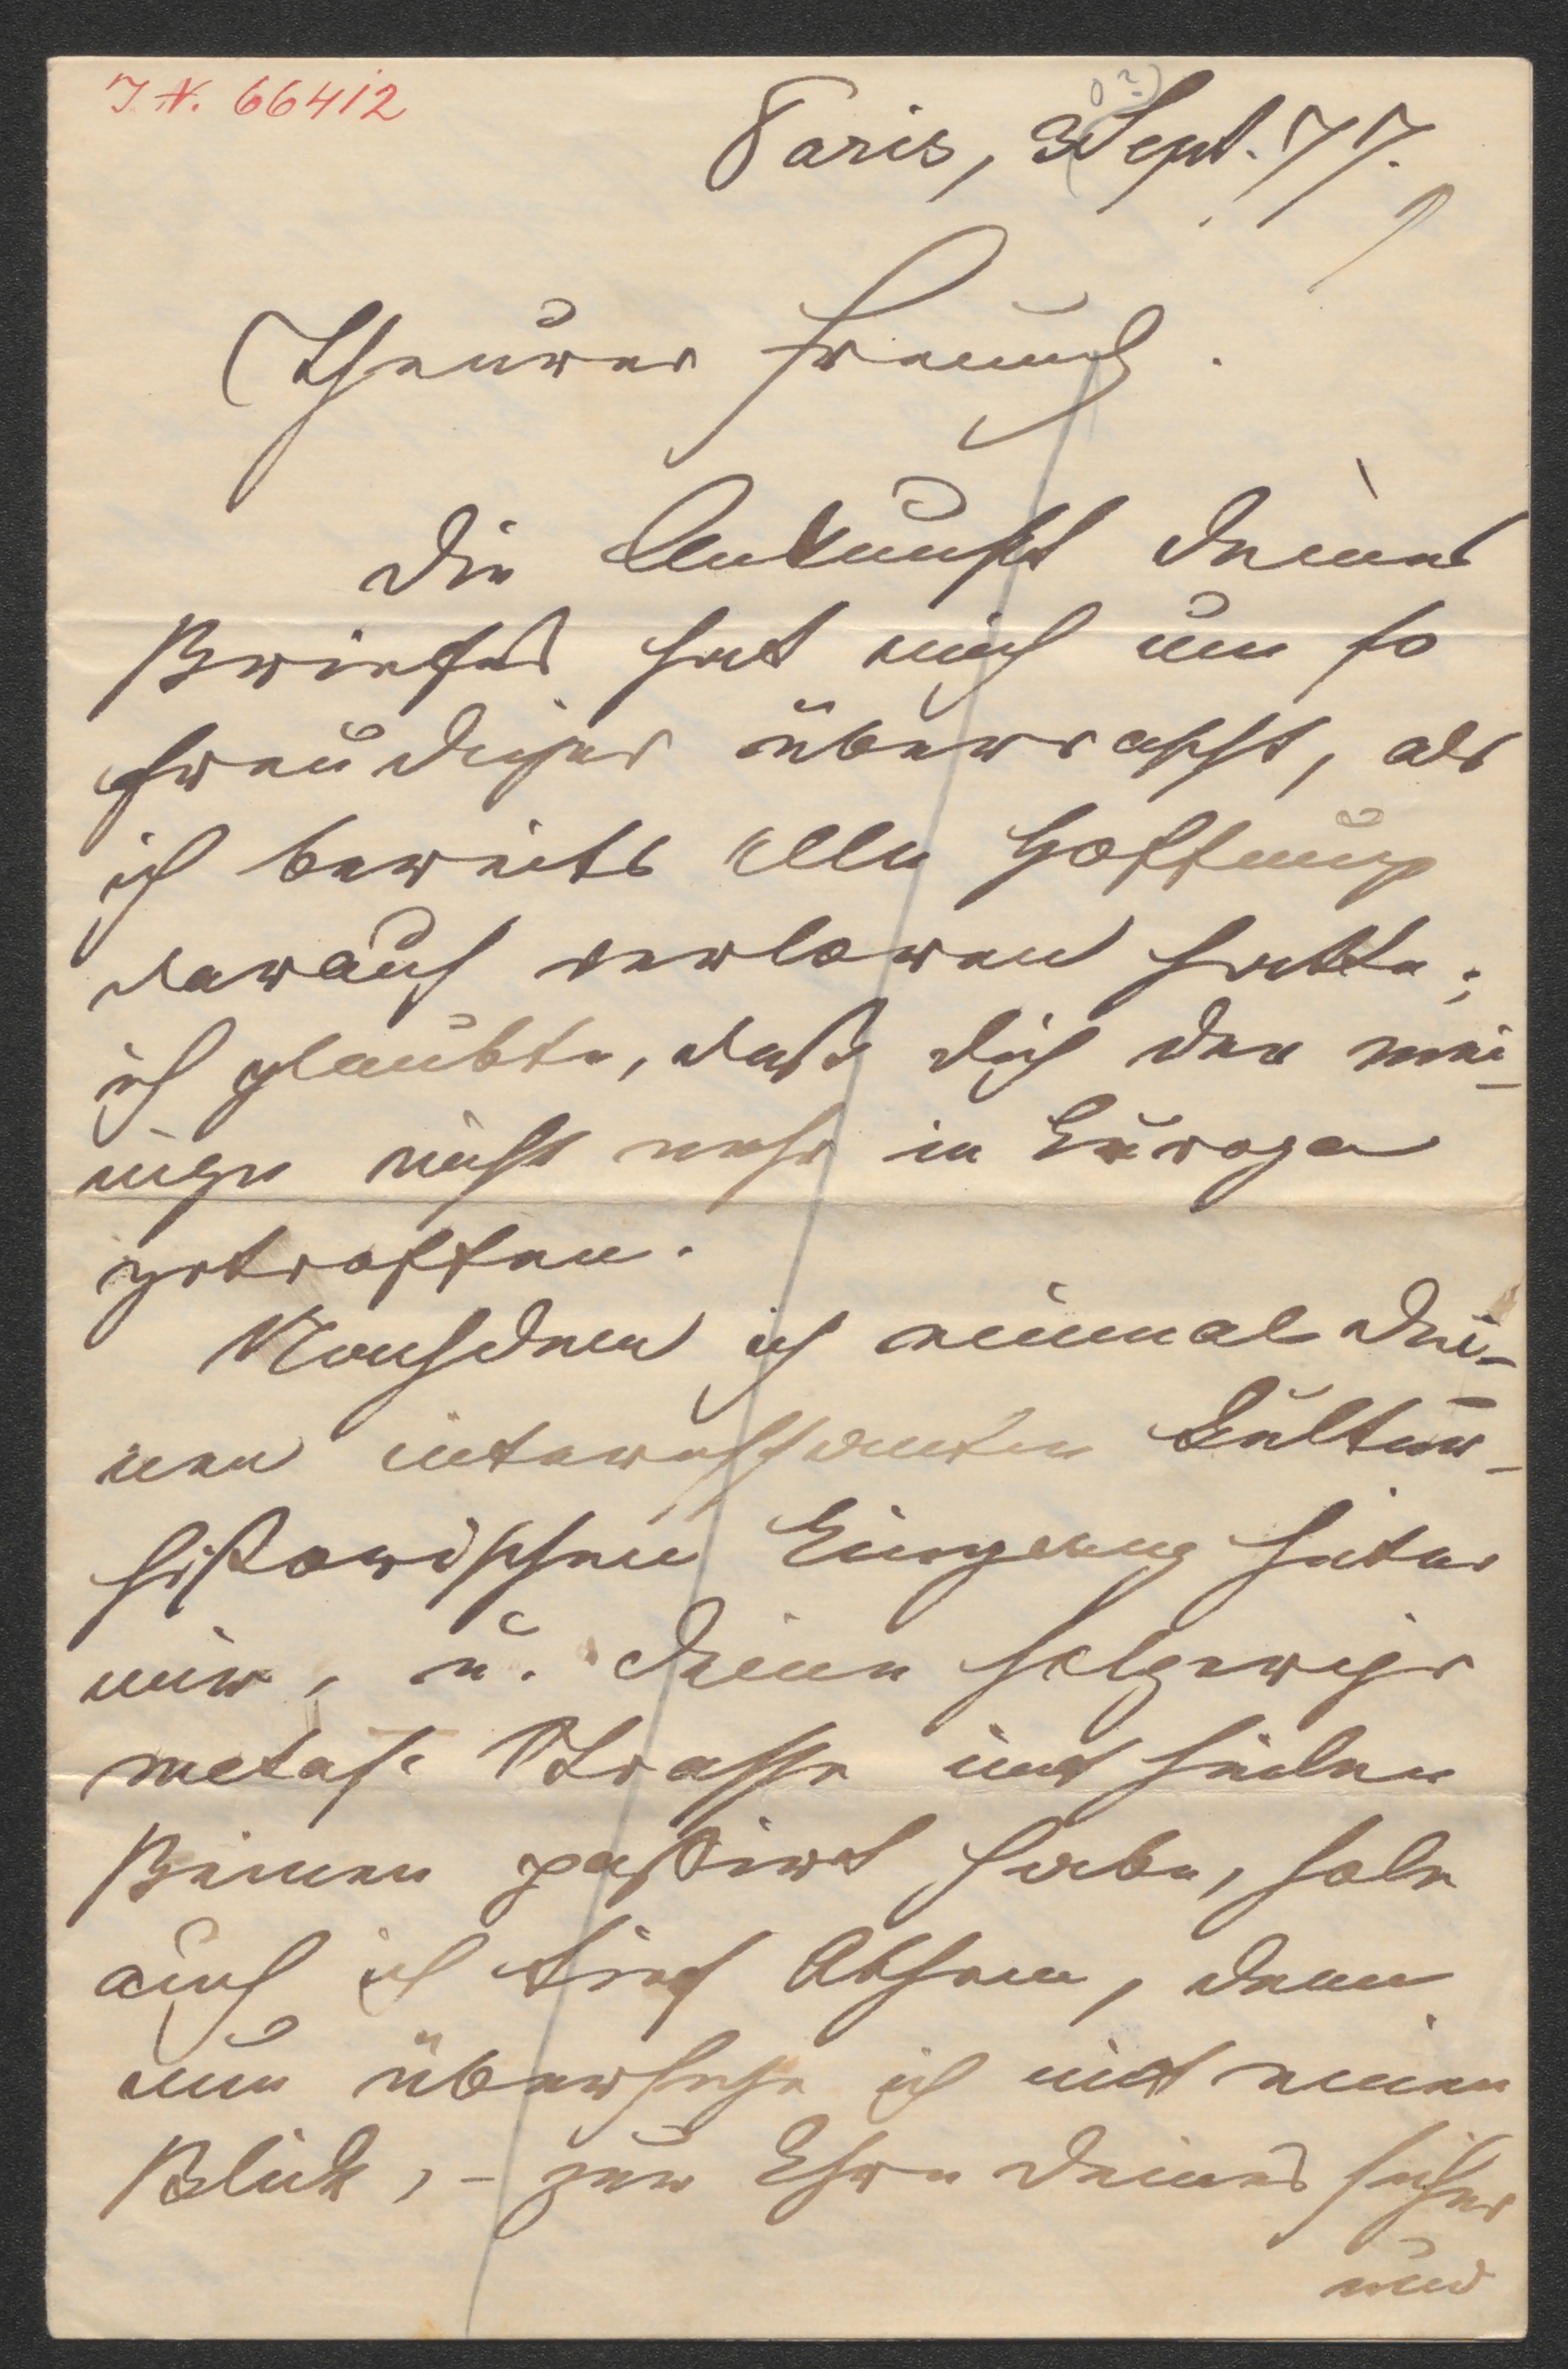 I.N. 66412
0?)
Paris, 3 Sept. 77.
Theurer Freund.
Die Ankunft Deines
Briefes hat mich um so
freudiger überrascht, als
ich bereits alle Hoffnung
darauf verloren hatte;
ich glaubte, daß Dich der mei-
nige nicht mehr in Europa
getroffen.
Nachdem ich einmal Dei-
nen interessanten Kultur-
historischen Eingang hinter
mir, u. Deine
Strasse mit heilen
Beinen passirt habe, hole
auch ich tief Athem, denn
nun übersehe ich mit einem
Blick, – zur Ehre Deines
und